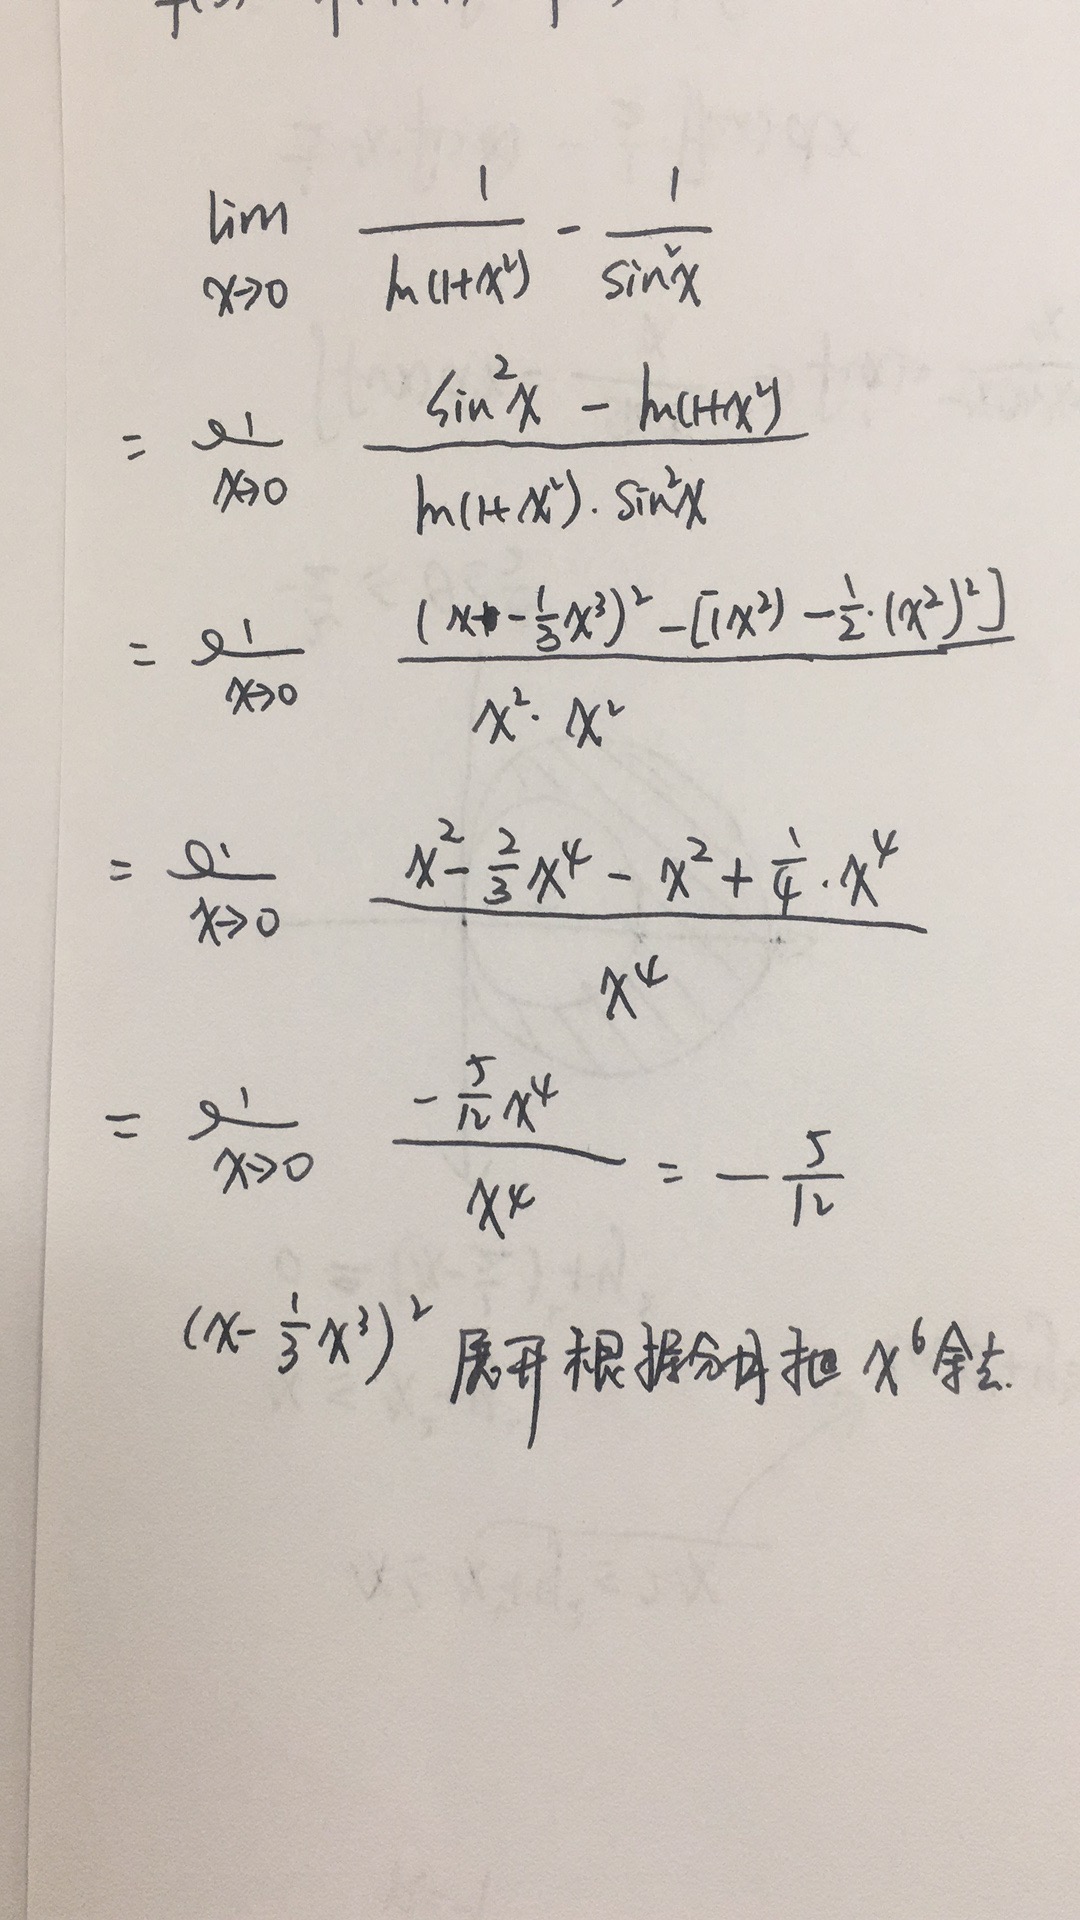 lim x→0 1/ln(1+x²) - 1/sin²x
= lim x→0 (sin²x - ln(1+x²))/(ln(1+x²)·sin²x)
= lim x→0 ((x - 1/3x³)² - [(x²) - 1/2·(x²)²])/(x²·x²)
= lim x→0 (x² - 2/3x⁴ - x² + 1/4·x⁴)/x⁴
= lim x→0 (-5/12x⁴)/x⁴ = -5/12
(x - 1/3x³)² 展开根据分母把 x⁶ 舍去.